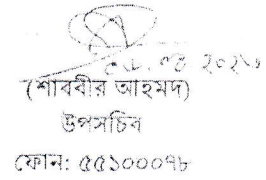 (শাব্বীর আহমদ)
উপসচিব
ফোন: ৫৫১০০০৭৮